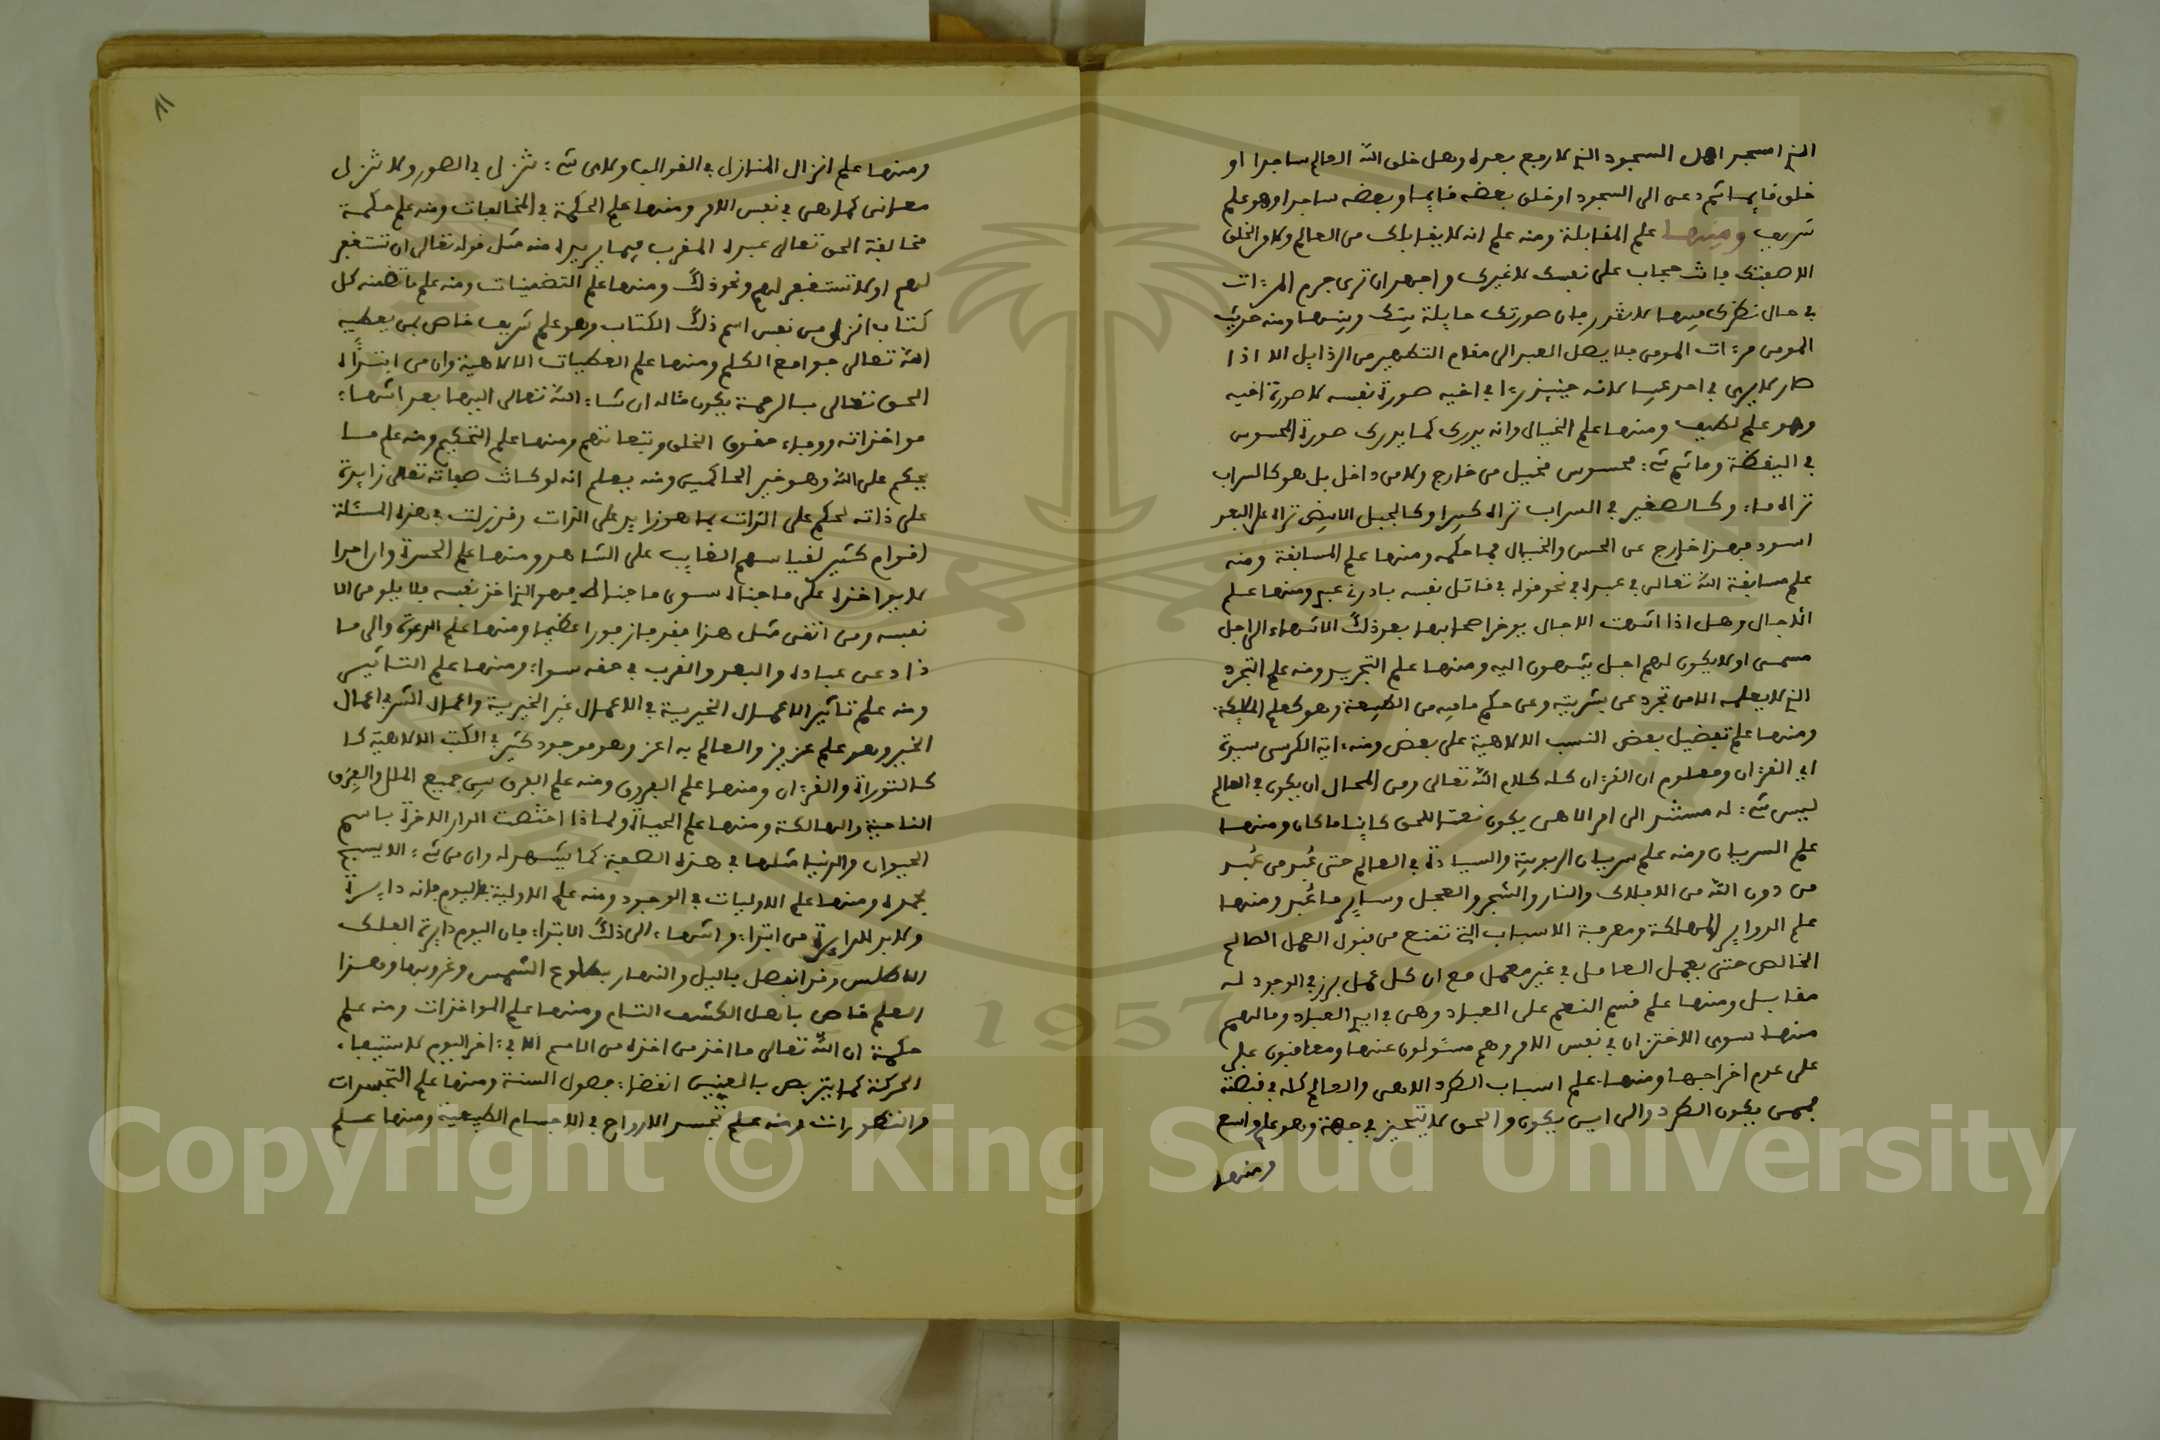 الذي اسجد اهل السجود الذي لا رجع بعده وهل خلق الله العالم ساجدا او
خلق قايما ثم دعى الى السجود او خلق بعضه قايما وبعضه ساجدا وهو علم
شريف ومنها علم المقابلة ومنه علم انه لا يقابلك من العالم ولا من الخلق
الا صفتك فانت حجاب على نفسك لا غيرك واجهد ان ترى جرم المرءات
في حال نظرك فيها لا تقدر فان صورتك حايلة بينك وبينها ومنه حديث
المومن مرءات المومن فلا يصل العبد الى مقام التطهير من الرذايل الا اذا
صار لا يرى في احد عيبا لانه حينيذ رءا في اخيه صورة نفسه لا صورة اخيه
وهو علم لطيف ومنها علم الخيال وانه يدرك كما يدرك صورة المحسوس
في اليقظة وما ثم شيء محسوس مخيل من خارج ولا من داخل بل هو كالسراب
تراه ماء وكالصغير في السراب تراه كبيرا وكالجبل الابيض تراه على البعد
اسود فهذا خارج عن الحس والخيال فما حكمه ومنها علم المسابقة ومنه
علم مسابقة الله تعالى في عبده في نحو قوله في قاتل نفسه بادرني عبدي ومنها علم
الاجال وهل اذا انتهت الاجال يوخر اصحابها بعد ذلك الانتهاء الى اجل
مسمى او لا يكون لهم اجل ينتهون اليه ومنها علم التجريد ومنه علم التجرد
الذي لا يعلمه الا من تجرد عن بشريته وعن حكم ما فيه من الطبيعة وهو كعلم الملايكة
ومنها علم تفضيل بعض النسب الالاهية على بعض ومنه ءاية الكرسي سيدة
اي القرءان ومعلوم ان القرءان كله كلام الله تعالى ومن المحال ان يكون في العالم
ليس شيء له مستند الى امر الاهي يكون نعتا للحق كاينا ما كان ومنها
علم السريان ومنه علم سريان الربوبية والسيادة في العالم حتى عبد من عبد
من دون الله من الافلاك والنار والشجر والعجل وساير ما عبد ومنها
علم الدواير المهلكة ومعرفة الاسباب التي تمنع من قبول العمل الصالح
الخالص حتى يعمل العامل في غير معمل مع ان كل عمل برز في الوجود له
مقابل ومنها علم قسم النعم على العباد وهي في ايدي العباد وما لهم
منها سوى الاختزان في نفس الامر وهم مسئولون عنها ومعاقبون على
على عدم اخراجها ومنها علم اسباب الطرد الالهي والعالم كله في قبضته
فممن يكون الطرد والى اين يكون والحق لا يتحيز في جهة وهو علم واسع
ومنها
١١
ومنها علم انزال المنازل في القوالب ولاي شيء تنزل في الصور ولا تنزل
معاني كما هي في نفس الامر ومنها علم الحكمة في المخالفات ومنه علم حكمة
مخالفة الحق تعالى عبده المقرب فيما يريده منه مثل قوله تعالى ان تستغفر
لهم او لا تستغفر لهم ونحو ذلك ومنها علم التضمينات ومنه علم ما تضمنه كل
كتاب انزل من نفس اسم ذلك الكتاب وهو علم شريف خاص بمن يعطيه
الله تعالى جوامع الكلم ومنها علم العطيات الالاهية وان من ابتداه
الحق تعالى بالرحمة يكون مثاله ان شاء الله تعالى اليها بعد انتهاء
مواخذاته ووفاء حقوق الخلق وتبعاتهم ومنها علم التحكيم ومنه علم ما
يحكم على الله وهو خير الحاكمين ومنه يعلم انه لو كانت صفاته تعالى زايدة
على ذاته لحكم على الذات بما هو زايد على الذات وقد زلت في هذه المسئلة
اقوام كثير لقياسهم الغايب على الشاهد ومنها علم الحسرة وان احدا
لا يواخذه على ما جناه سوى ما جناه فهو الذي اخذ نفسه فلا يلومن الا
نفسه ومن اتقى مثل هذا فقد فاز فوزا عظيما ومنها علم الدعوة والى ما
ذا دعى عباده والبعد والقرب في حقه سواء ومنها علم التاثير
ومنه علم تاثير الاعمال الخيرية في الاعمال غير الخيرية واعمال الشر في اعمال
الخير وهو علم عزيز والعالم به اعز وهو موجود كثير في الكتب الالاهية كا
كالتوراة والقرءان ومنها علم الفروق ومنه علم الفرق بين جميع الملل والفرق
الناجية والهالكة ومنها علم الحياة ولماذا اختصت الدار الاخرة باسم
الحيوان والدنيا مثلها في هذه الصفة كما يشهد له وان من شيء الا يسبح
بحمده ومنها علم الاوليات في الوجود ومنه علم الاولية لليوم فانه دايرة
ولا بد للدايرة من ابتداء وانتهاء الى ذلك الابتداء فان اليوم دايرة الفلك
الاطلس وقد انفصل بالليل والنهار بطلوع الشمس وغروبها وهذا
العلم خاص باهل الكشف التام ومنها علم المواخذات ومنه علم
حكمة ان الله تعالى ما اخذ من اخذه من الامم الا في ءاخر اليوم لاستيفاء
الحركة كما يتربص بالعنين انقضاء فصول السنة ومنها علم التجسدات
والتطورات ومنه علم تجسد الارواح في الاجسام الطبيعية ومنها علم